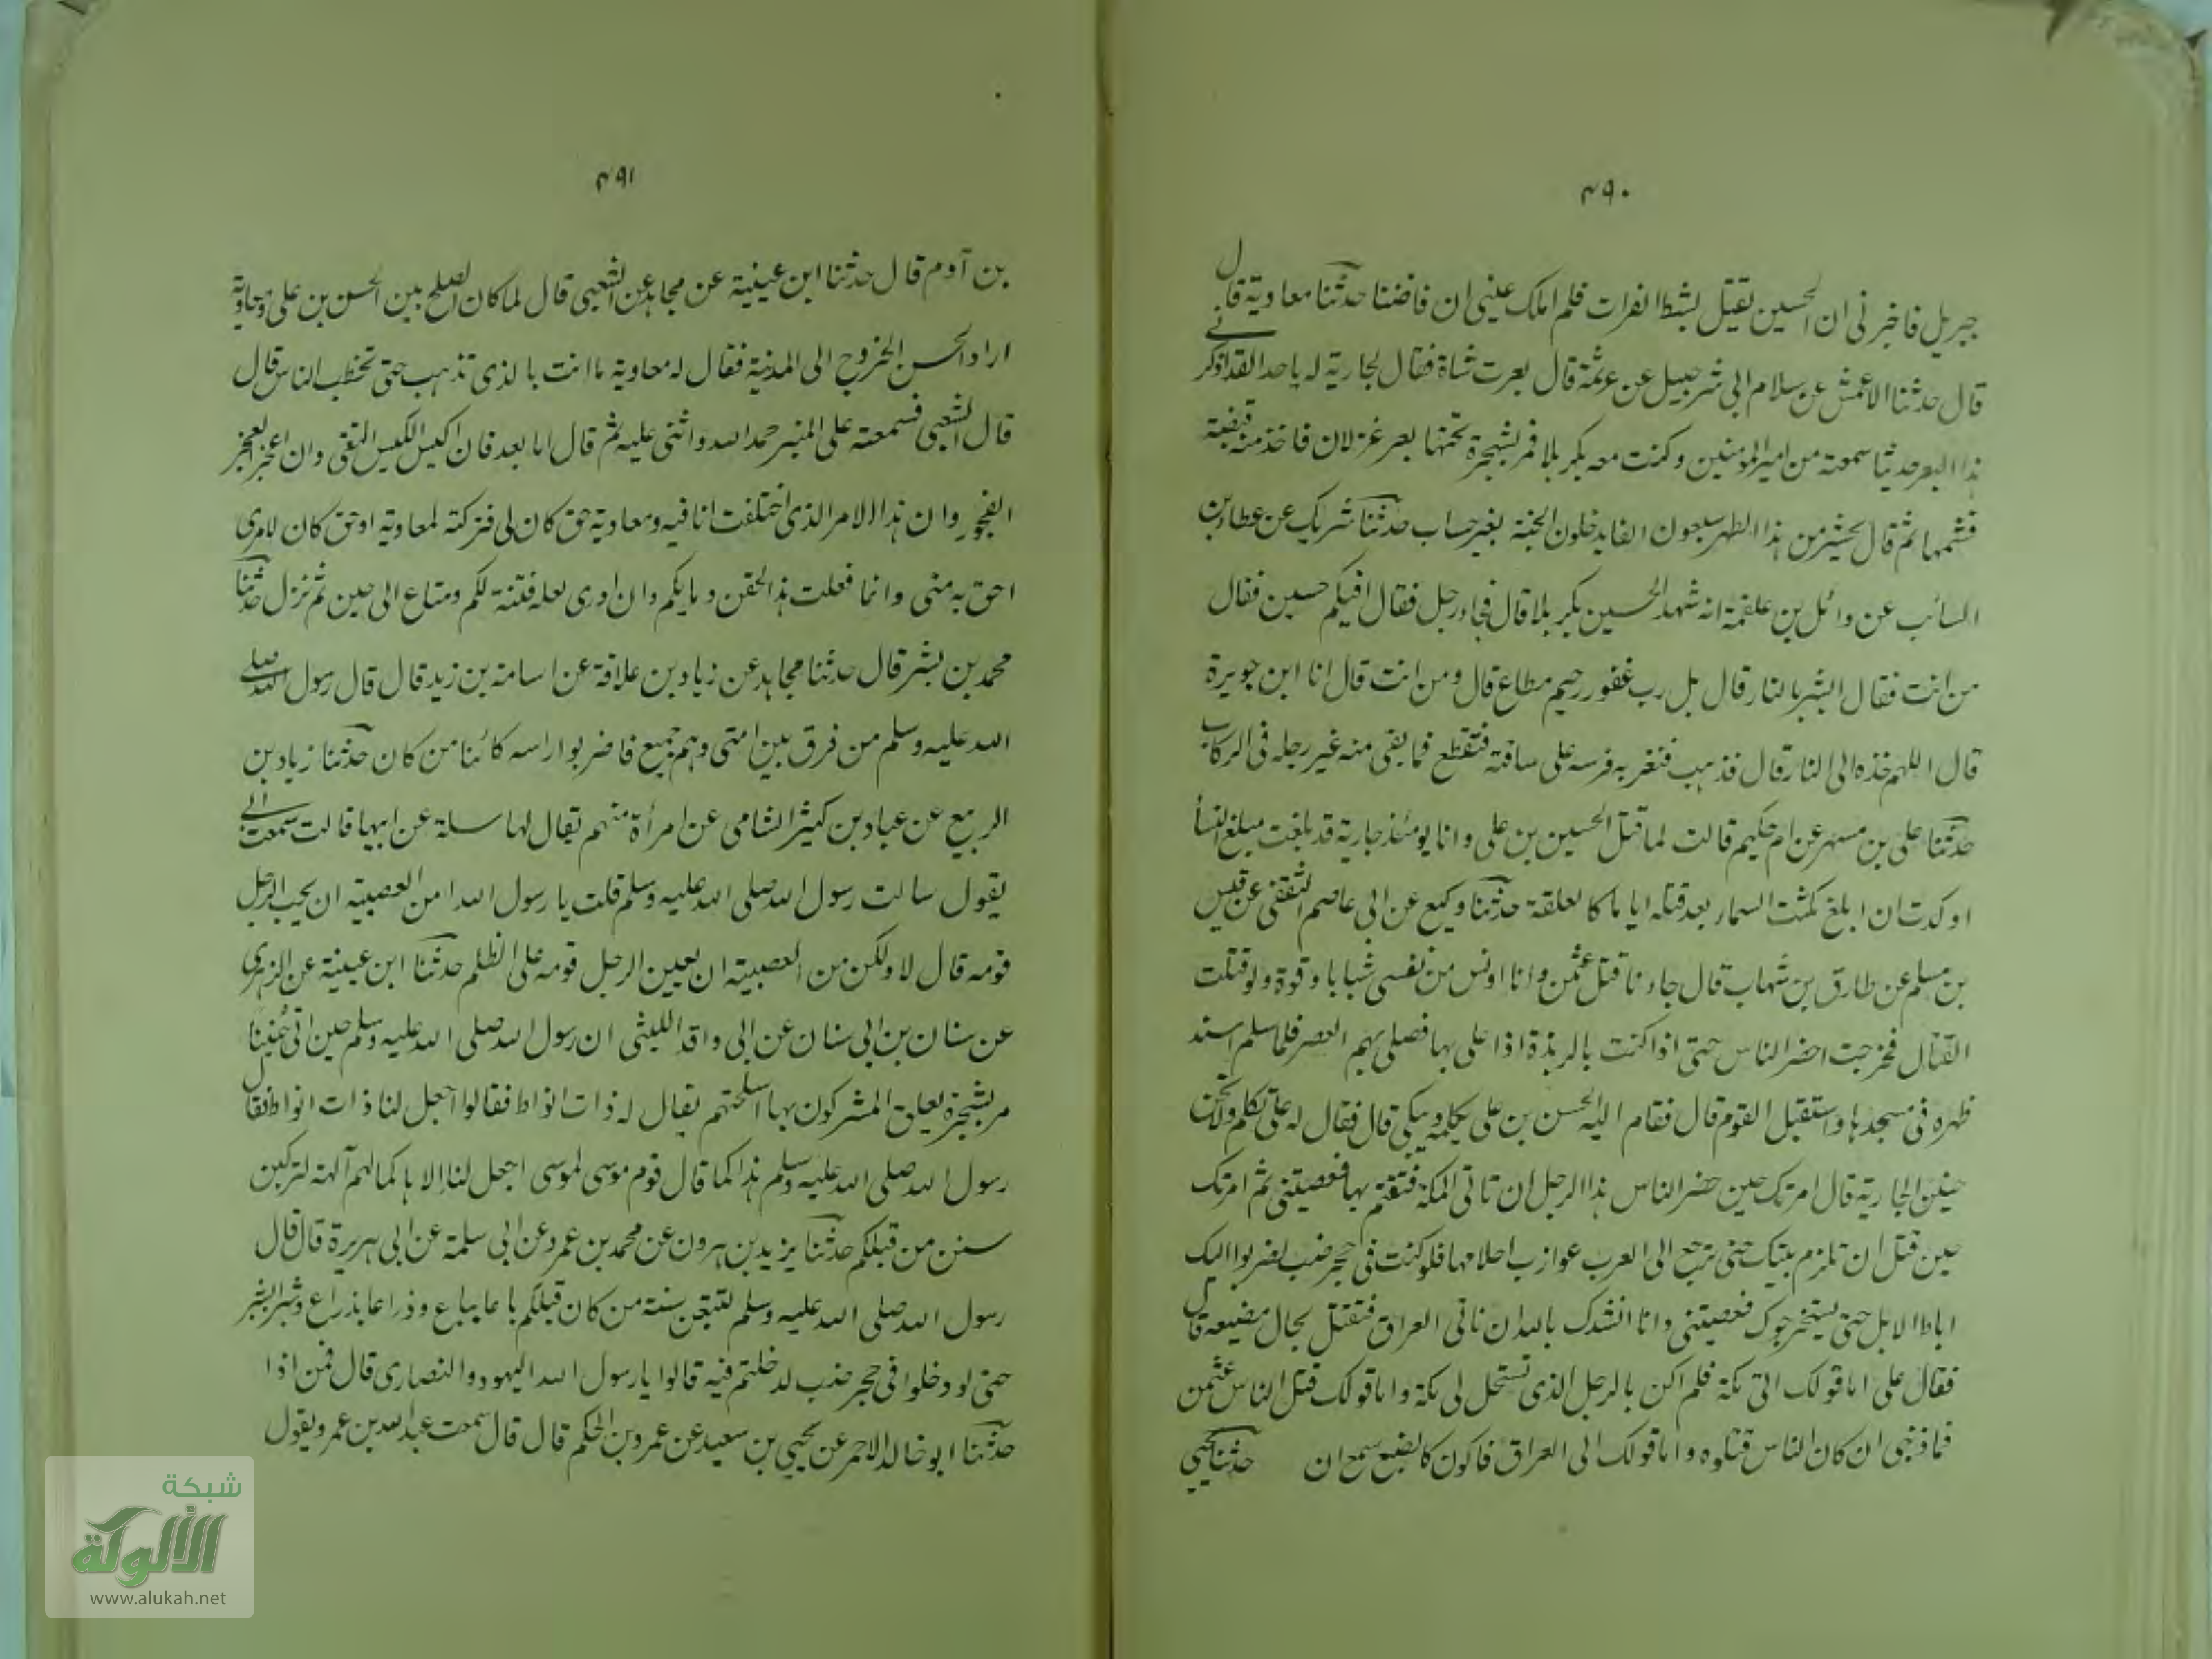 ٤٩٠
جبريل فاخبرنى ان الحسين يقتل بشط الفرات فلم املك عينى ان فاضتا حدثنا معاوية قال
قال حدثنا الاعمش عن سلام ابى شرحبيل عن هرثمة قال بعرت شاة فقال لجارية له يا جرداء لقد اذكرنى
هذا البعر حديثا سمعته من امير المومنين وكنت معه بكربلا فمر بشجرة تحتها بعر غزلان فاخذ منه قبضة
فشمها ثم قال يحشر من هذا الظهر سبعون الفا يدخلون الجنة بغير حساب حدثنا شريك عن عطاء بن
السائب عن وائل بن علقمة انه شهد الحسين بكربلا قال فجاء رجل فقال افيكم حسين فقال
من انت فقال ابشر بالنار قال بل رب غفور رحيم مطاع قال ومن انت قال انا ابن جويرة
قال اللهم خذه الى النار قال فذهب فنفر به فرسه على ساقته فتقطع فما بقى منه غير رجله فى الركاب
حدثنا على بن مسهر عن ام حكيم قالت لما قتل الحسين بن على وانا يومئذ جارية قد بلغت مبلغ النسا
او كدت ان ابلغ مكثت السماء بعد قتله اياما كالعلقة حدثنا وكيع عن ابى عاصم الثقفى عن قيس
بن مسلم عن طارق بن شهاب قال جاءنا قتل عثمن وانا اونس من نفسى شبابا وقوة ولو قتلت
القتال فخرجت احضر الناس حتى اذا كنت بالربذة اذا على بها فصلى بهم العصر فلما سلم اسند
ظهره فى مسجدها واستقبل القوم قال فقام اليه الحسن بن على يكلمه ويبكى قال فقال له على تكلم ولا تحن
حنين الجارية قال امرتك حين حضر الناس هذا الرجل ان تاتى المكة فتقيم بها فعصيتنى ثم امرتك
حين قتل ان تلزم بيتك حتى يرجع الى العرب عوازب احلامها فلو كنت فى حجر ضب لضربوا اليك
اباط الابل حتى يستخرجوك فعصيتنى وانا انشدك بالله ان تاتى العراق فتقتل بحال مضيعة قال
فقال على اما قولك اتى مكة فلم اكن بالرجل الذى تستحل لى مكة واما قولك قتل الناس عثمن
فما ذنبى ان كان الناس قتلوه واما قولك اتى العراق فاكون كالضبع تسمع ان حدثنا يحيى
٤٩١
بن آدم قال حدثنا ابن عيينة عن مجاهد عن الشعبى قال لما كان الصلح بين الحسن بن على ومعاوية
اراد الحسن الخروج الى المدينة فقال له معاوية ما انت بالذى تذهب حتى تخطب الناس قال
قال الشعبى فسمعته على المنبر حمد الله واثنى عليه ثم قال اما بعد فان اكيس الكيس التقى وان اعجز العجز
الفجور وان هذا الامر الذى اختلفت انا فيه ومعاوية حق كان لى فتركته لمعاوية او حق كان لامرى
احق به منى وانما فعلت هذا لحقن دمايكم وان ادرى لعله فتنة لكم ومتاع الى حين ثم نزل حدثنا
محمد بن بشر قال حدثنا مجاهد عن زياد بن علاقة عن اسامة بن زيد قال قال رسول الله صلى
الله عليه وسلم من فرق بين امتى وهم جميع فاضربوا راسه كائنا من كان حدثنا زياد بن
الربيع عن عباد بن كثير الشامى عن امرأة منهم يقال لها سلة عن ابيها قالت سمعت ابى
يقول سالت رسول الله صلى الله عليه وسلم قلت يا رسول الله امن العصبية ان يحب الرجل
قومه قال لا ولكن من العصبية ان يعين الرجل قومه على الظلم حدثنا ابن عيينة عن الزهرى
عن سنان بن ابى سنان عن ابى واقد الليثى ان رسول الله صلى الله عليه وسلم حين اتى حنينا
مر بشجرة يعلق المشركون بها اسلحتهم يقال له ذات انواط فقالوا اجعل لنا ذات انواط فقال
رسول الله صلى الله عليه وسلم هذا كما قال قوم موسى لموسى اجعل لنا الاها كما لهم آلهة لتركبن
سنن من قبلكم حدثنا يزيد بن هرون عن محمد بن عمرو عن ابى سلمة عن ابى هريرة قال قال
رسول الله صلى الله عليه وسلم لتتبعن سنة من كان قبلكم باعا بباع وذراعا بذراع وشبرا بشبر
حتى لو دخلوا فى حجر ضب لدخلتم فيه قالوا يا رسول الله اليهود والنصارى قال فمن اذا
حدثنا ابو خالد الاحمر عن يحيى بن سعيد عن عمرو بن الحكم قال قال سمعت عبد الله بن عمرو يقول
شبكة
الألوكة
www.alukah.net